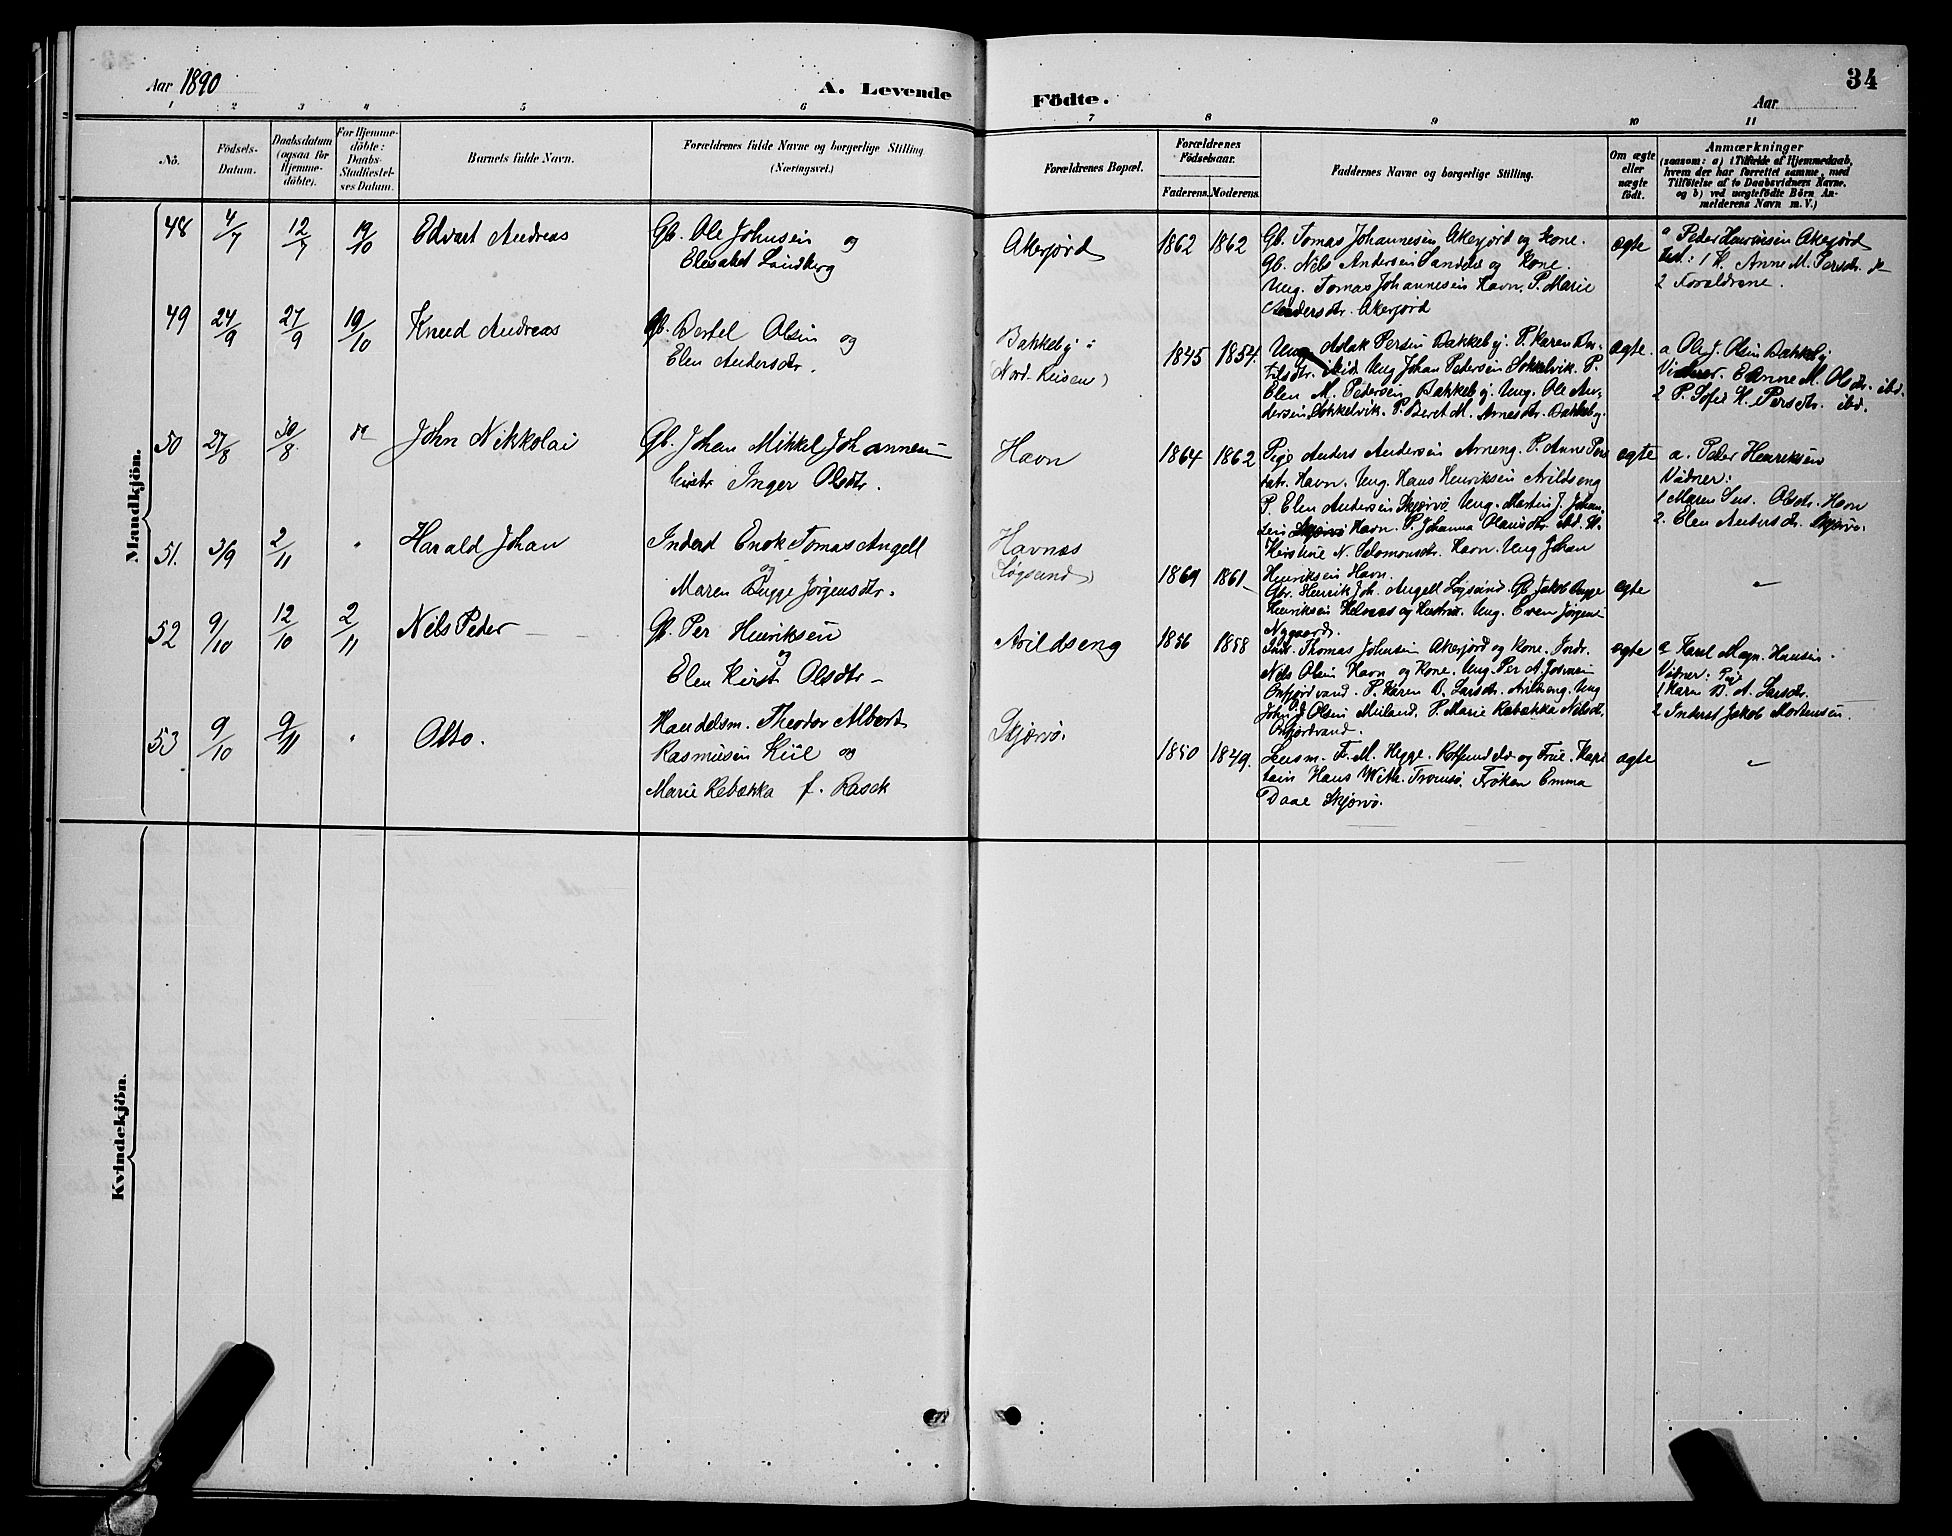 Aar 1890
A. Levende
Födte.
Aar
34
1 2 3 4 5 6 7 8 9 10 11
No.
Födsels-
Datum.
Daabsdatum
(ogsaa for
Hjemme-
döbte).
For Hjemme-
döbte:
Daabs-
Stadfæstel-
ses Datum.
Barnets fulde Navn.
Forældrenes fulde Navne og borgerlige Stilling
(Næringsvei.)
Forældrenes Bopæl.
Forældrenes
Födselsaar.
Faderens.
Moderens.
Faddernes Navne og borgerlige Stilling.
Om ægte
eller
uægte
födt.
Anmærkninger
(saasom: a) i Tilfælde af Hjemmedaab,
hvem der har forrettet samme, med
Tilföielse af to Daabsvidners Navne,
og b) ved uægtefödte Börn An-
melderens Navn m. V.)
Mandkjön.
48 4/7 12/7 19/10 Edvart Andreas
Gb. Ole Johnsen og
Elisabet Lindberg
Akerjord 1862 1862
Gb. Tomas Johannesen Akerjord og Kone.
Gb. Nils Andersen Sandnes og Kone.
Ung. Tomas Johannesen Havn. P. Marie
Andersdtr. Akerjord
ægte
a Peder Henriksen Akerjord
1 K. Anne M. Persdtr.
2 Forældrene.
49 24/9 27/9 19/10 Knud Andreas
Gb. Bertel Olsen og
Elen Andersdtr.
Bakkeby i
(Nord-Reisen)
1845 1854.
Ung. Aslak Persen Bakkeby. P. Karen Ber-
tilsdtr. ibid. Ung Johan Pedersen Sokkelvik. P.
Elen M. Pedersen Bakkeby. Ung. Ole An-
dersen Sokkelvik. P. Beret M. Arnesdtr. Bakkeby.
ægte.
a. Ole J. Olsen Bakkeby
Vidner. Anne M. Olsdtr. ibd.
2 P. Sofie K. Persdtr. ibd.
50 27/8 30/8 John Nikkolai
Gb. Johan Mikkel Johannesen
Hustr Inger Olsdtr.
Havn 1864 1862
Pige Anders Andersen Arneng. P. Anne Per
Havn. Ung. Hans Henriksen Arildseng
P. Elen Andersen Skjervø. Ung. Martin J. Johan-
sen Havn. P. Johanna Olausdtr. ibd. K.
Kirstine N. Salomonsdtr. Havn. Ung Johan
Henriksen Havn.
ægte
a. Peder Henriksen
Vidner:
1 Maren Sus. Olsdtr. Havn
2. Elen Andersdtr. Skjervø.
51. 3/9 2/11 " Harald Johan
Inderst Enok Tomas Angell
og
Maren Bugge Jørgensdtr.
Havnnæs
Løgsund)
1869 1861
Gbr. Henrik Joh. Angell Løgsund. Gb Jakob Bugge
Henriksen Helnæs og Hustru. Ung. Even Jørgens
Nygaard.
ægte
"
52 9/10 12/10 2/11 Nils Peder
Gb. Per Henriksen
og
Elen Kirst Olsdtr
Arildseng 1856 1858
Ind. Thomas Johnsen Akerjord og Kone. Indr.
Nils Olsen Havn og Kone. Ung. Per A Josvasen
Oxfjordvand. P. Karen B. Larsdtr. Arildseng. Ung
John J Olsen Meiland. P. Marie Rebækka Nilsdt.
Oxfjordvand.
ægte
a Karl Magn. Hansen.
Vidner: Pige
1 Karen B. A. Larsdtr.
2 Inderst Jakob Mortensen.
53 9/10 9/11 " Otto.
Handelsm. Theodor Albert
Rasmusen Kiil og
Marie Rebækka f. Rasch
Skjervø.
1850 1849.
Lensm. F. M. Hegge. Rotsundelv og Frue. Kap-
tain Hans With. Tromsø. Frøken Emma
Daae Skjervø.
ægte
"
Kvindekjön.